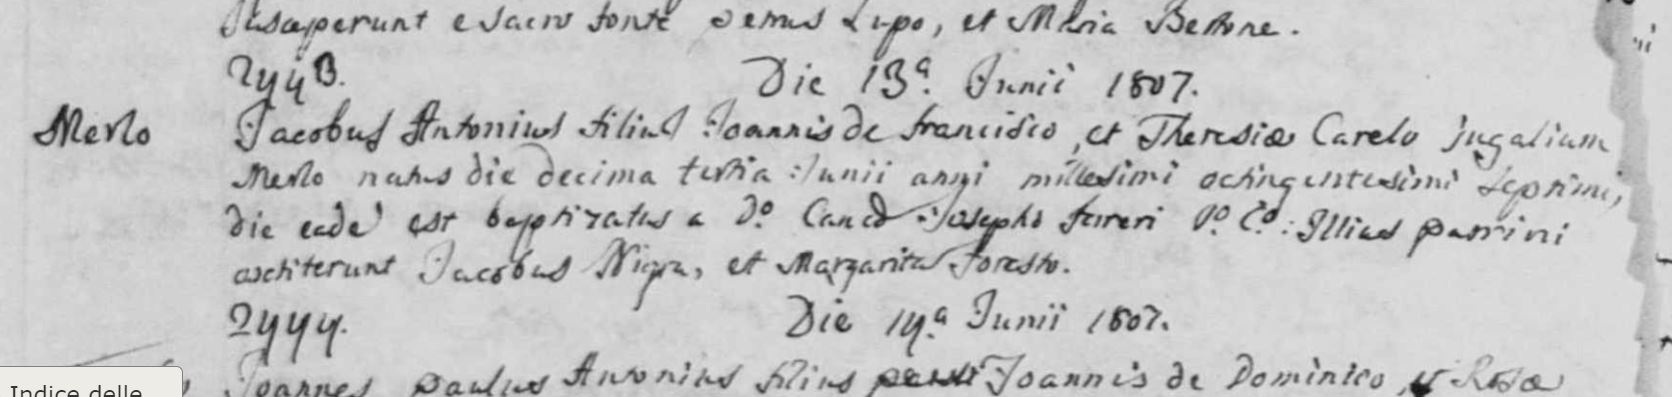 Susceperunt e sacro fonte Petrus Lupo, et Maria Bettone.
2443. Die 13ª. Junii 1807.
Merlo Jacobus Antonius filius Joannis de francisco, et Theresiæ Carelo jugalium
Merlo natus die decima tertia Junii anni millesimi octingentesimi septimi,
die eade' est baptizatus a Do. Josepho ferreri Illius patrini
exstiterunt Jacobus Nigra, et Margarita Foresto.
2444. Die 14ª Junii 1807.
Joannes paulus Antonius filius Joannis de Dominico, et Rosæ
Indice delle